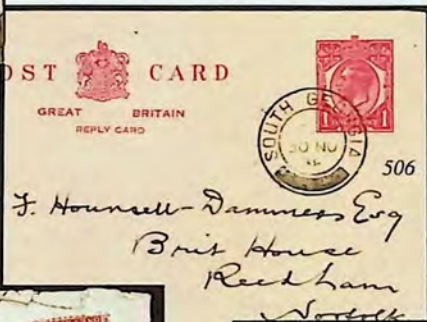 OST CARD
GREAT BRITAIN
REPLY CARD
1 1
SOUTH GEORGIA
30 NO
506
F. Hounsell-Dammers Esq
Brit House
Reedham
Norfolk